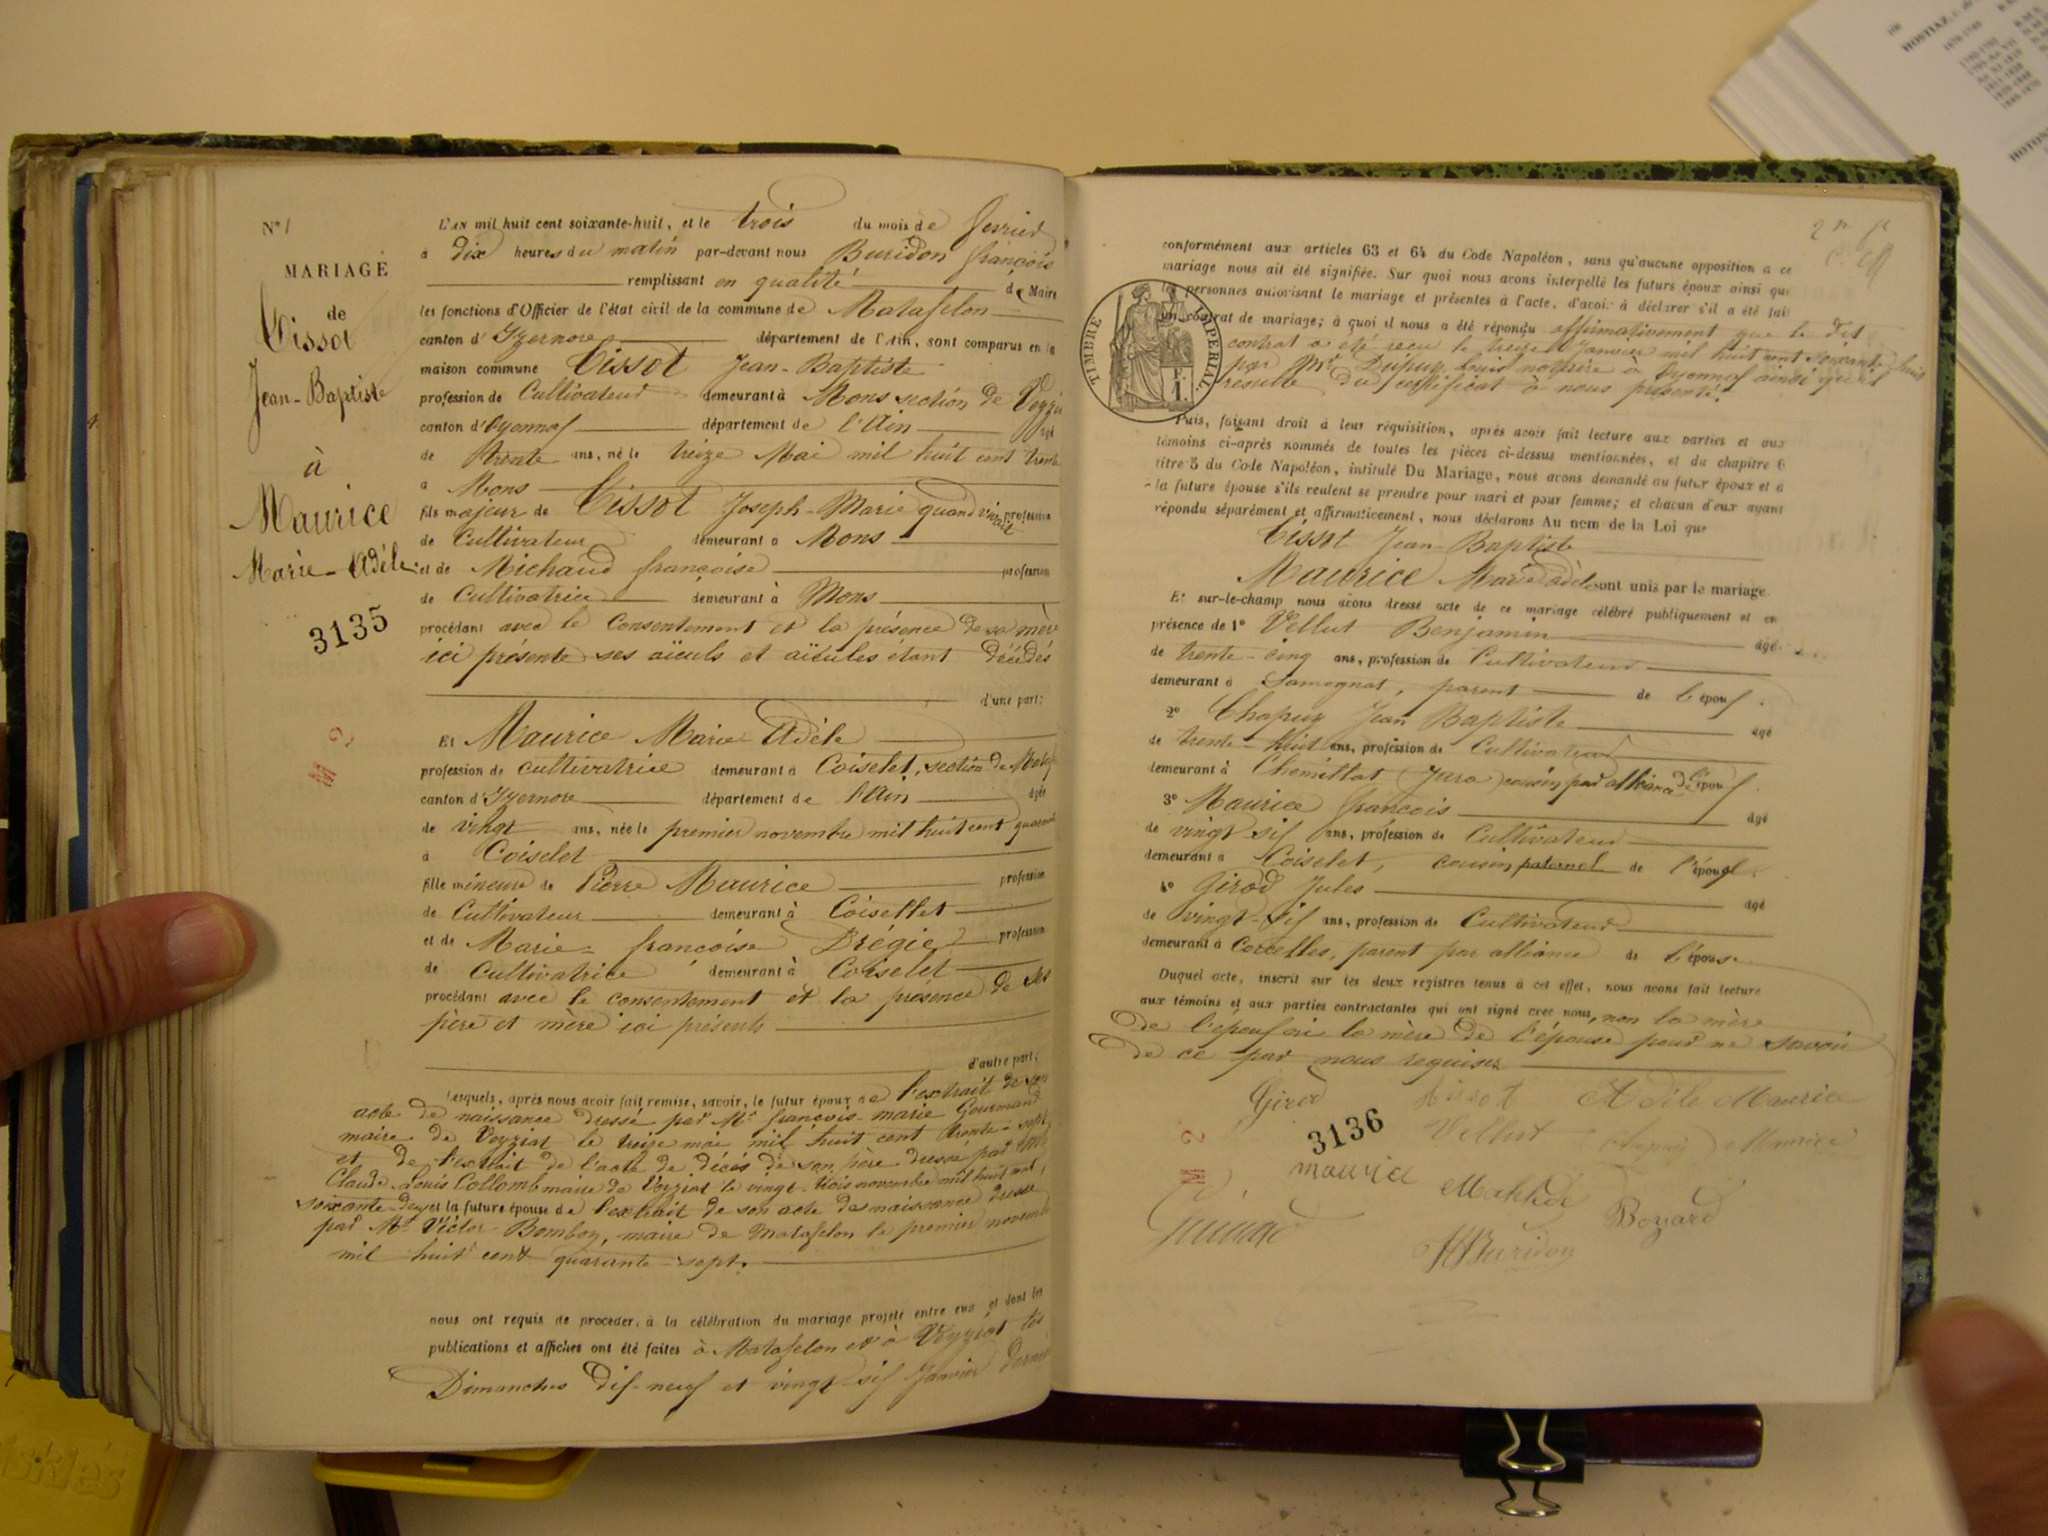 N° 1
MARIAGE
de
Tissot
Jean-Baptiste
à
Maurice
Marie-Adèle
3135
L'AN mil huit cent soixante-huit, et le trois du mois de fevrier
à dix heures du matin par-devant nous Buridon françois
remplissant en qualité de Maire
les fonctions d'Officier de l'état civil de la commune de Matafelon
canton d'Izernore département de l'Ain, sont comparus en la
maison commune Tissot Jean-Baptiste
profession de Cultivateur demeurant à Mons section de Veyziat
canton d'Oyonnax département de l'Ain âgé
de trente ans, né le treize Mai mil huit cent trente
à Mons
fils majeur de Tissot Joseph-Marie quand vivait profession
de Cultivateur demeurant à Mons
et de Michaud françoise profession
de Cultivatrice demeurant à Mons
procédant avec le Consentement et la présence de sa mère
ici présente ses aïeuls et aïeules étant décédés
d'une part;
Et Maurice Marie Adèle
profession de cultivatrice demeurant à Coiselet, section de Mataf
canton d'Izernore département de l'Ain âgée
de vingt ans, née le premier novembre mil huit cent quarante
à Coiselet
fille mineure de Pierre Maurice profession
de Cultivateur demeurant à Coisellet
et de Marie-françoise Drégie profession
de Cultivatrice demeurant à Coiselet
procédant avec le consentement et la présence de ses
père et mère ici présents
d'autre part;
Lesquels, après nous avoir fait remise, savoir, le futur époux de l'extrait de son
acte de naissance dressé par Mr françois-marie Gourmand
maire de Veyziat le treize mai mil huit cent trente-sept
et de l'extrait de l'acte de décès de son père dressé par
Claude-Louis Collomb maire de Veyziat le vingt-trois novembre mil huit cent
soixante-deux et la future épouse de l'extrait de son acte de naissance dressé
par Mr Victor Bomboy, maire de Matafelon le premier novembre
mil huit cent quarante-sept.
nous ont requis de procéder, à la célébration du mariage projeté entre eux et dont les
publications et affiches ont été faites à Matafelon et à Veyziat les
Dimanches dix-neuf et vingt-six Janvier dernier
conformément aux articles 63 et 64 du Code Napoléon, sans qu'aucune opposition à ce
mariage nous ait été signifiée. Sur quoi nous avons interpellé les futurs époux ainsi que
les personnes autorisant le mariage et présentes à l'acte, d'avoir à déclarer s'il a été fait
un contrat de mariage; à quoi il nous a été répondu affirmativement que le dit
contrat a été reçu le treize Janvier mil huit cent soixante-huit
par Mr Dupuy Louis notaire à Oyonnax ainsi qu'il
résulte du certificat à nous présenté.
TIMBRE IMPERIAL
1 F.
Puis, faisant droit à leur réquisition, après avoir fait lecture aux parties et aux
témoins ci-après nommés de toutes les pièces ci-dessus mentionnées, et du chapitre 6
titre 5 du Code Napoléon, intitulé Du Mariage, nous avons demandé au futur époux et à
la future épouse s'ils veulent se prendre pour mari et pour femme; et chacun d'eux ayant
répondu séparément et affirmativement, nous déclarons Au nom de la Loi que
Tissot Jean-Baptiste
Maurice Marie Adèle sont unis par le mariage.
Et sur-le-champ nous avons dressé acte de ce mariage célébré publiquement et en
présence de 1° Vellut Benjamin âgé
de trente-cinq ans, profession de Cultivateur
demeurant à Samognat, parent de l'époux
2° Chapuy Jean Baptiste âgé
de trente-huit ans, profession de Cultivateur
demeurant à Chemillat (Jura) cousin par alliance de l'époux
3° Maurice françois âgé
de vingt-six ans, profession de Cultivateur
demeurant à Coiselet, cousin paternel de l'épouse
4° Girod Jules âgé
de vingt-six ans, profession de Cultivateur
demeurant à Corcelles, parent par alliance de l'épouse
Duquel acte, inscrit sur les deux registres tenus à cet effet, nous avons fait lecture
aux témoins et aux parties contractantes qui ont signé avec nous, non la mère
de l'époux ni la mère de l'épouse pour ne savoir
de ce par nous requises
Girod Tissot Adèle Maurice
3136 Vellut Chapuy Maurice
maurice Mathilde Bozard
Buridon